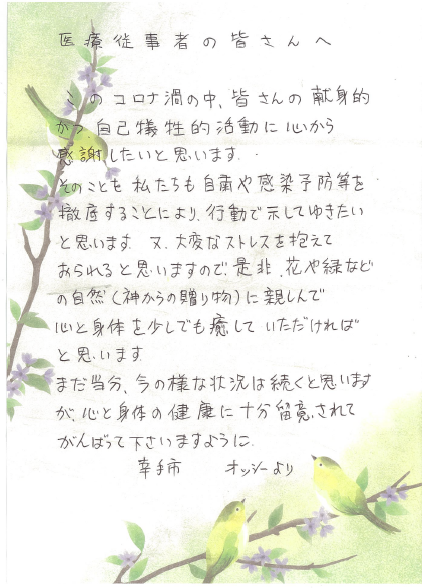 医療従事者の皆さんへ
このコロナ渦の中、皆さんの献身的
かつ自己犠牲的活動に心から
感謝したいと思います。
そのことを私たちも自粛や感染予防等を
徹底することにより、行動で示してゆきたい
と思います。又、大変なストレスを抱えて
おられると思いますので是非、花や緑など
の自然（神からの贈り物）に親しんで
心と身体を少しでも癒していただければ
と思います。
まだ当分、今の様な状況は続くと思います
が、心と身体の健康に十分留意されて
がんばって下さいますように。
幸手市 オッシーより